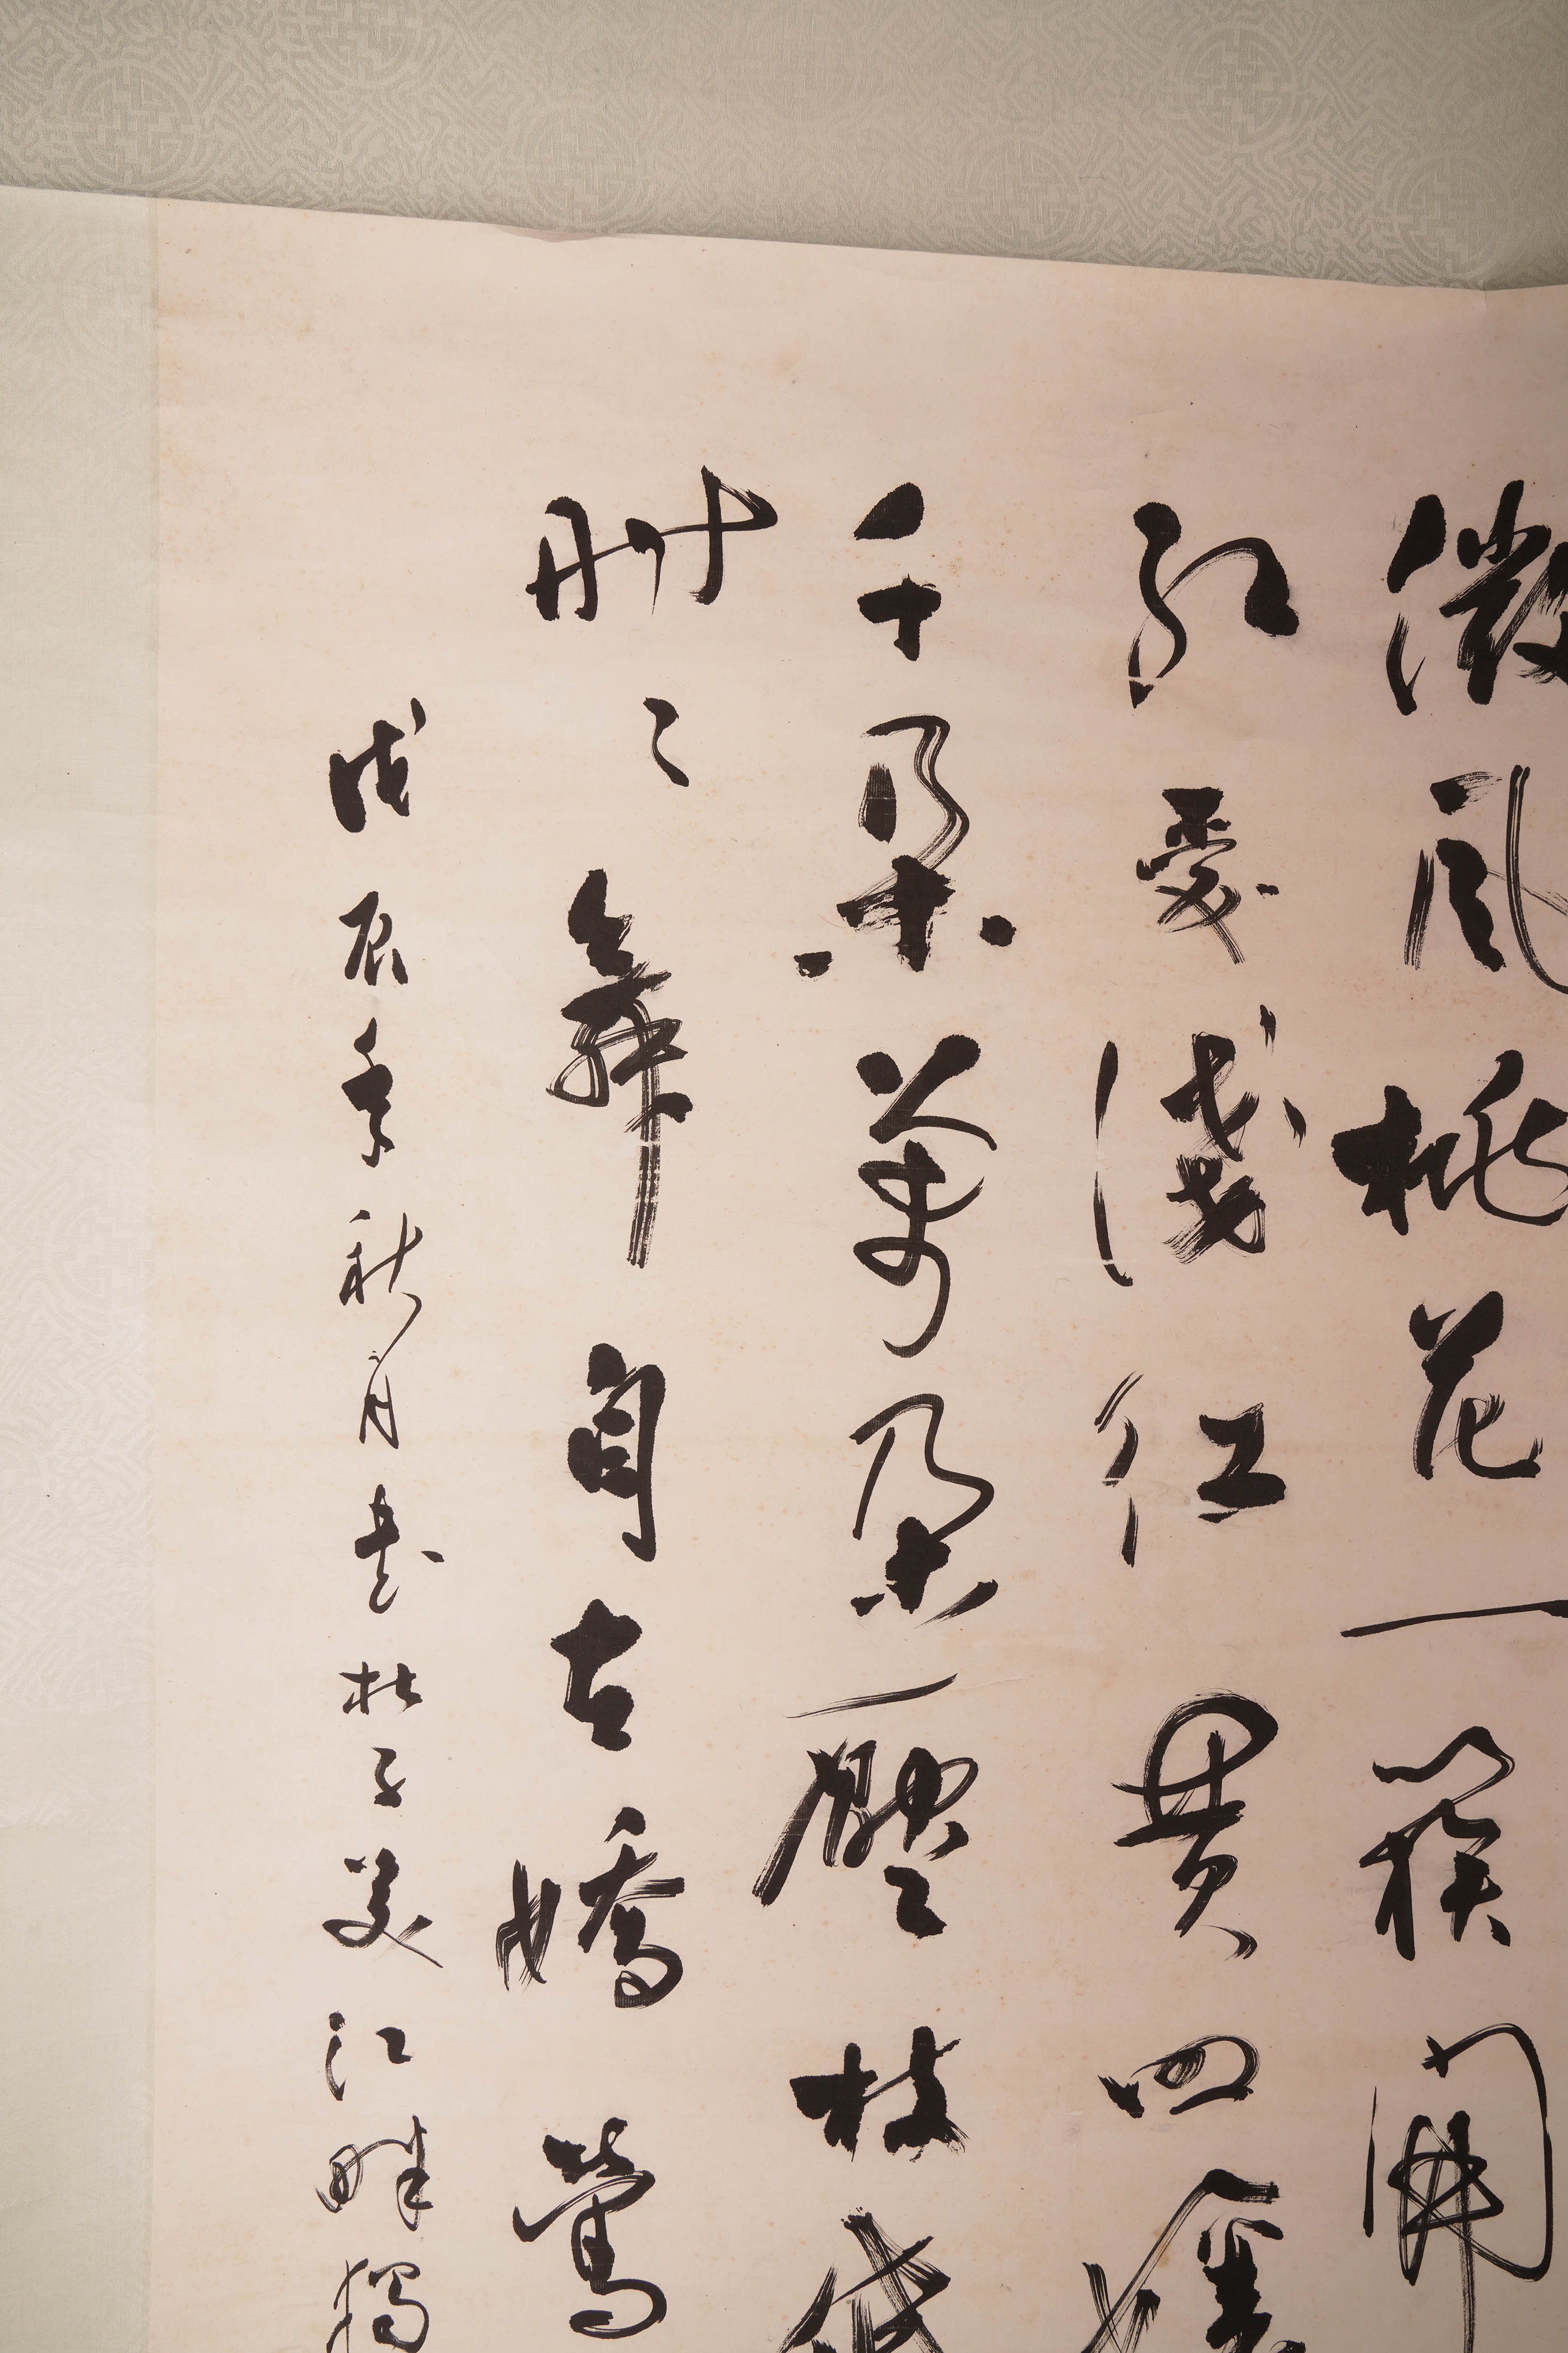 微風桃花一簇開
紅愛淺紅黃四娘
千朵萬朵壓枝低
時々舞自在嬌鶯
戊辰季秋月書杜子美江畔獨